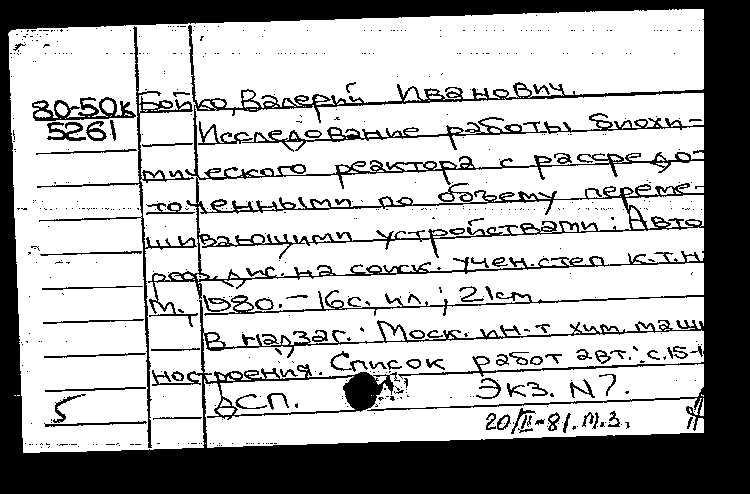 80-50к Бойко, Валерий Иванович.
5261 Исследование работы биохи-
мического реактора с рассредо-
точенными по объему переме-
шивающими устройствами: Авто
реф. дис. на соиск. учен. степ к.т.н
М., 1980. - 16с., ил.; 21см.
В надзаг.: Моск. ин-т хим. маши
ностроения. Список работ авт.: с.15-1
5 ДСП. Экз. N7.
20/II-81. М.З.